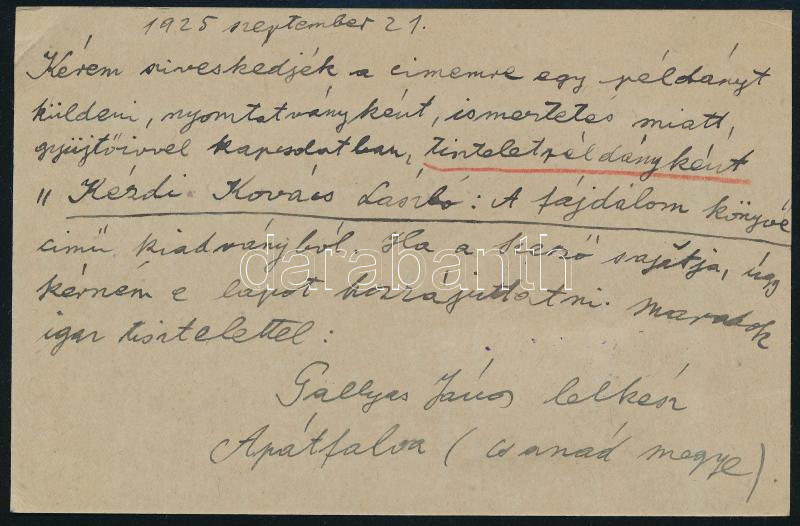 1925 szeptember 21.
Kérem sziveskedjék a cimemre egy példányt
küldeni, nyomtatványként, ismertetés miatt,
gyüjtőivvel kapcsolatban, tiszteletpéldányként
" Kézdi. Kovács László: A fájdalom könyve
cimű kiadványból. Ha a szerző sajátja, úgy
kérném e lapot hozzájuttatni. Maradok
igaz tisztelettel:
Gallyas János lelkész
Apátfalva (Csanád megye).
darabanth